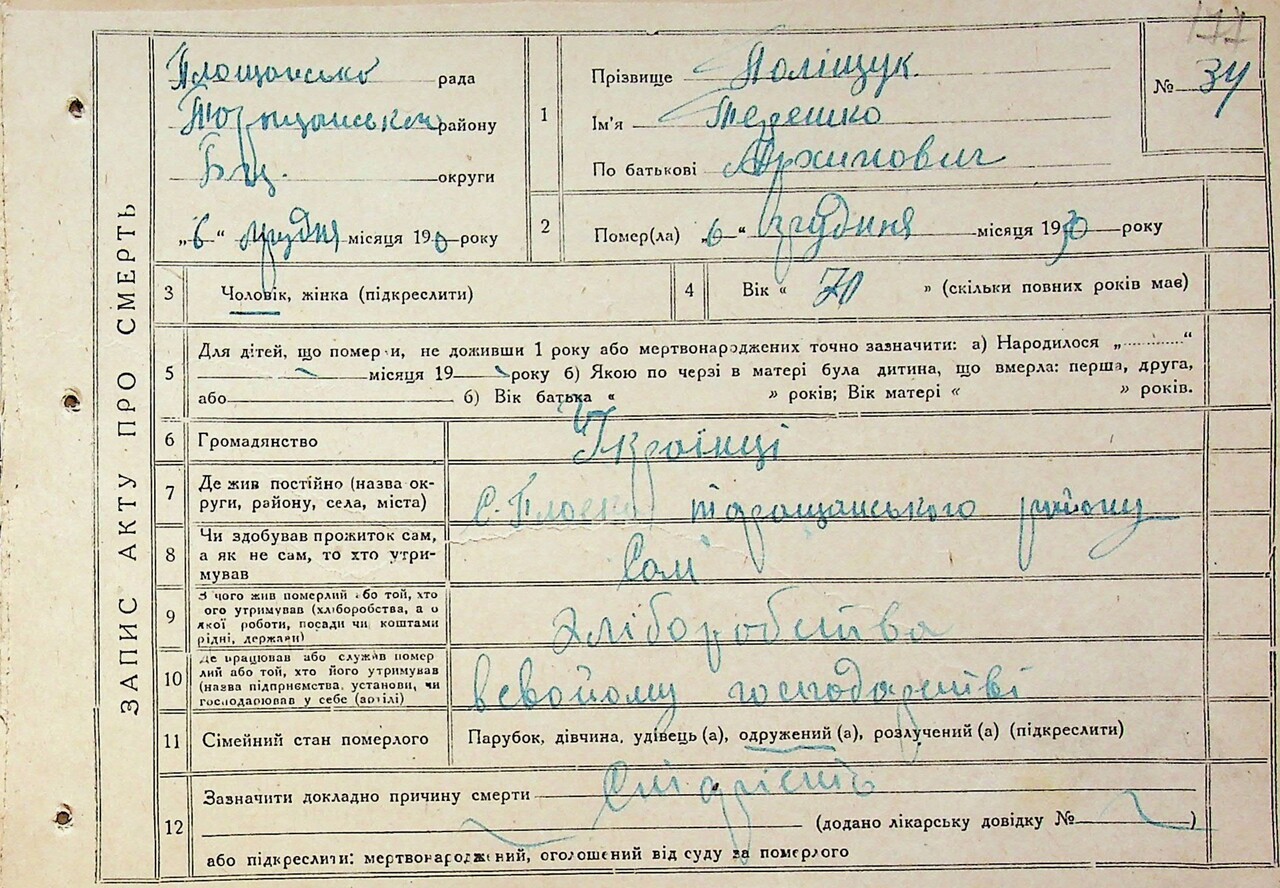 177
ЗАПИС АКТУ ПРО СМЕРТЬ
Площанської рада
району
Б.Ц. округи
„6“ грудня місяця 190 року
1
Прізвище Поліщук.
Ім'я Терешко
По батькові Архипович
№ 34
2
Помер(ла) „6“ грудня місяця 1930 року
3
Чоловік, жінка (підкреслити)
4
Вік « 70 » (скільки повних років має)
5
Для дітей, що померли, не доживши 1 року або мертвонароджених точно зазначити: а) Народилося „ “
місяця 19 року б) Якою по черзі в матері була дитина, що вмерла: перша, друга,
або б) Вік батька « » років; Вік матері « » років.
6
Громадянство
Українці
7
Де жив постійно (назва ок-
руги, району, села, міста)
с. Плоска району
8
Чи здобував прожиток сам,
а як не сам, то хто утри-
мував
Сам
9
З чого жив померлий або той, хто
ого утримував (хліборобства, а о
якої роботи, посади чи коштами
рідні, держави)
Хліборобства
10
Де працював або служив помер
лий або той, хто його утримував
(назва підприємства, установи, чи
господарював у себе (артілі)
в свойому господарстві
11
Сімейний стан померлого
Парубок, дівчина, удівець (а), одружений (а), розлучений (а) (підкреслити)
12
Зазначити докладно причину смерти
(додано лікарську довідку № )
або підкреслити: мертвонароджений, оголошений від суду за померлого